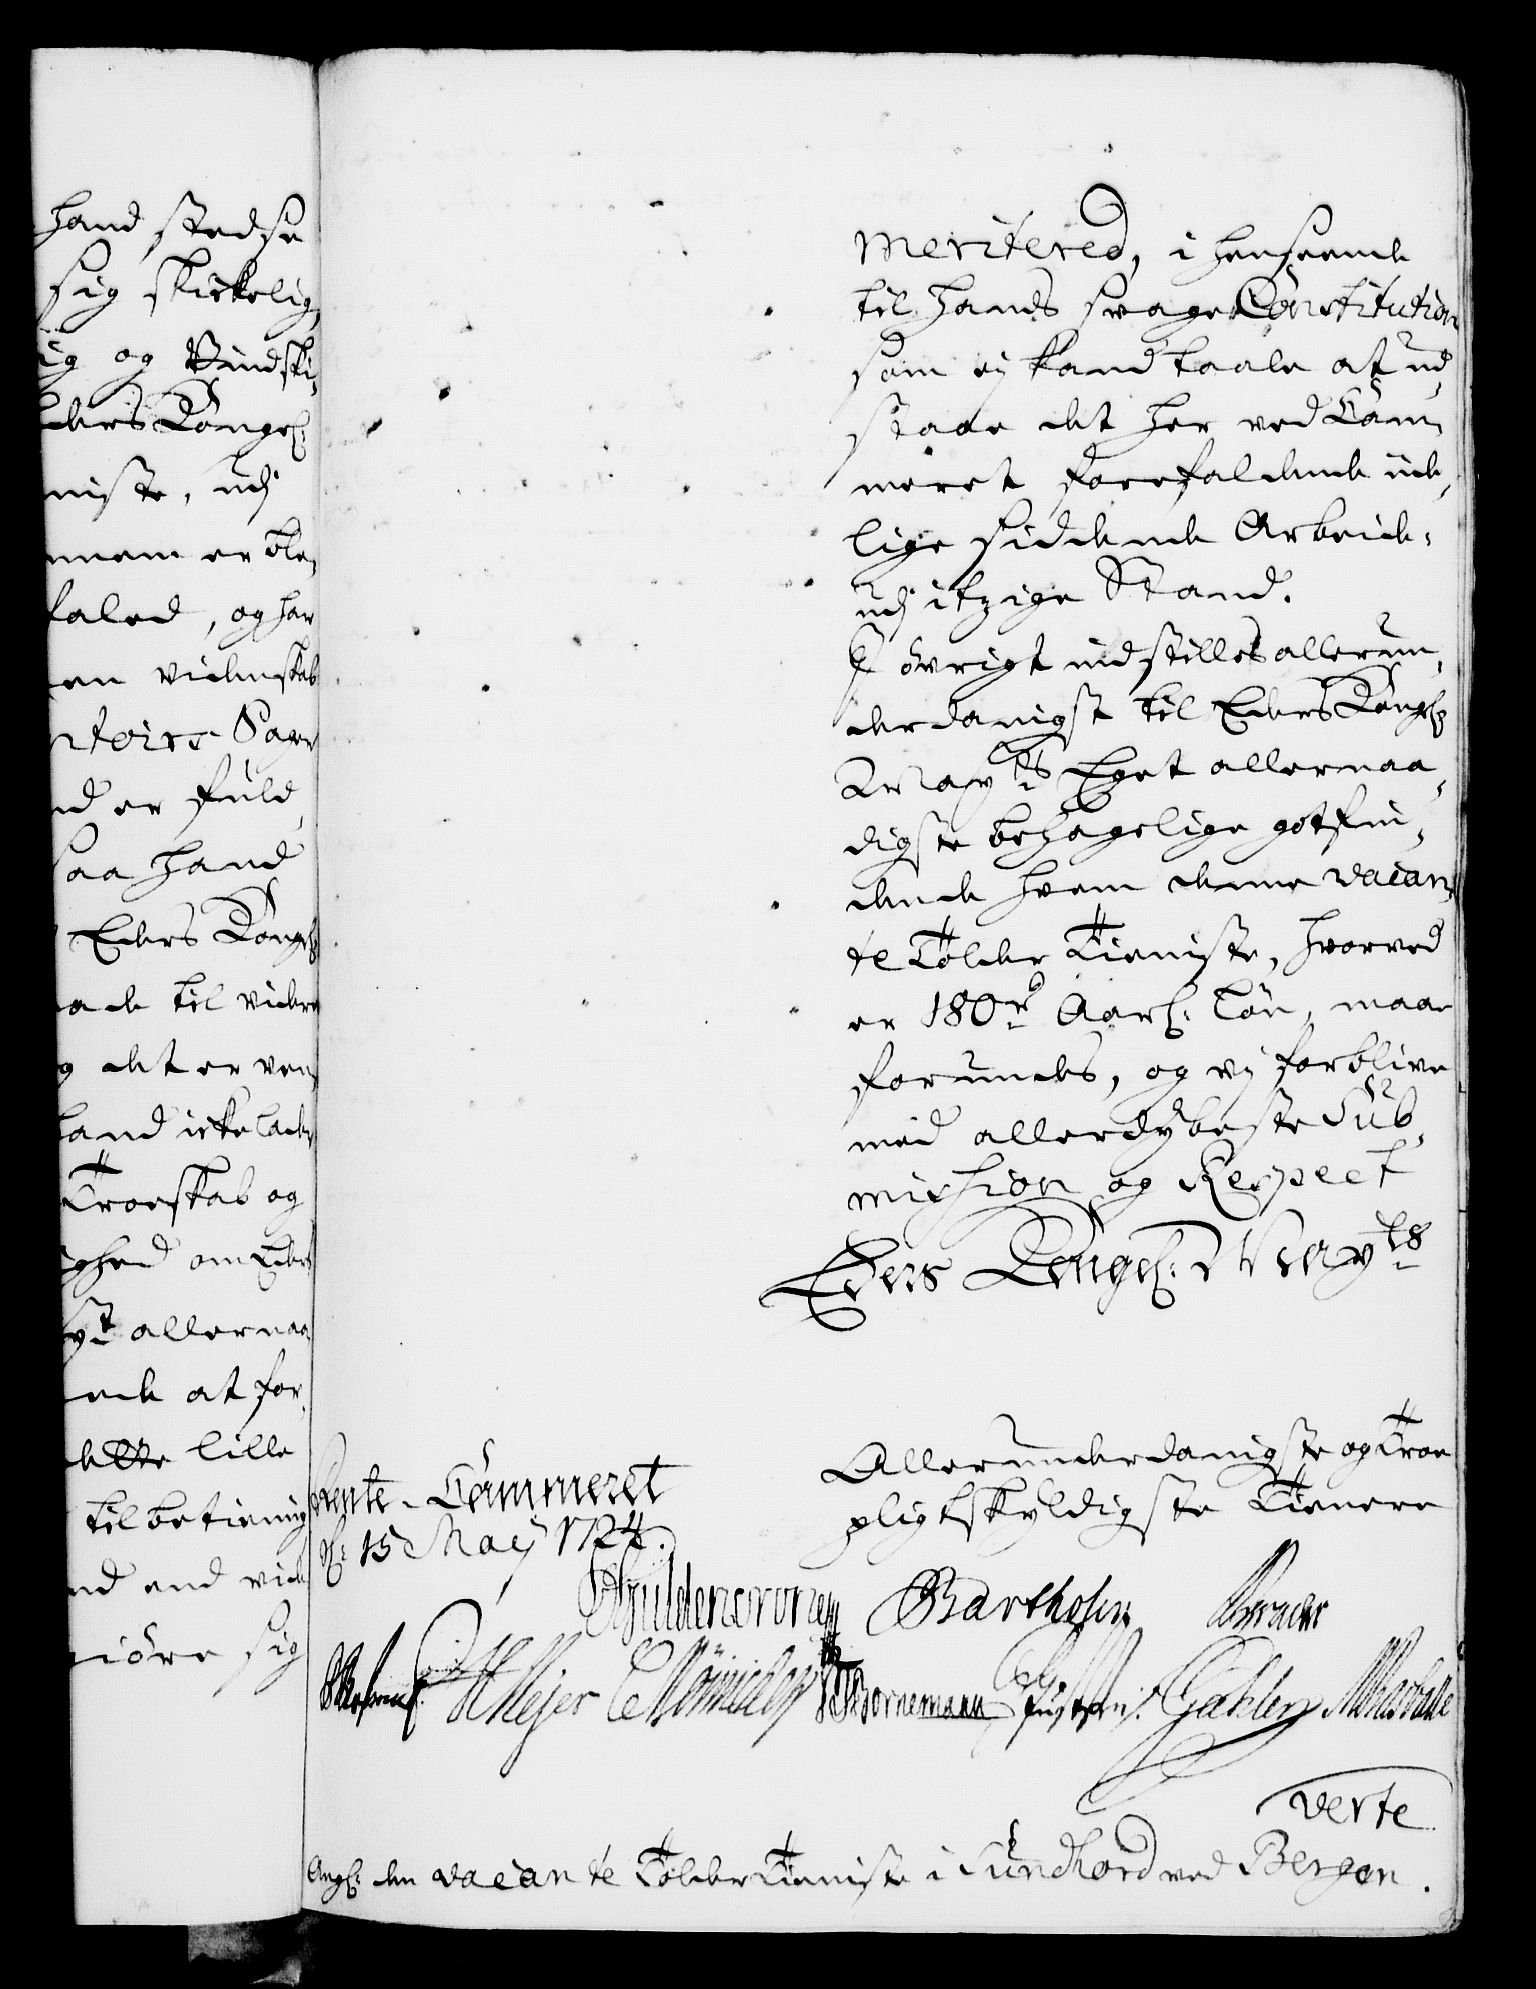 hand stedse
sig skickelig,
ig og Vindski„
ders Kongel:
niste, udj
nnem er ble„
faled, og har
en videnskab
ntoirs Sager
nd er fuld„
saa hand
Eders Kongel:
ade til videre
g det er ven„
hand icke lader
Troeskab og
ghed om Eders
yt allernaa„
ende at for„
dette lille
til betiening
nd end vide
giøre sig
meritered, i henseende
til hands svage Constitution
som ej kand taale at ud„
staae det her ved Cam„
meret forefaldende ide„
lige siddende Arbeide
udj itzige Stand.
I øvrigt indstilles allerun„
derdanigst til Eders Kongel:
Mayts Eget allernaa„
digste behagelige gotfin„
dende hvem denne vacan„
te Tolder Tieniste, hvorved
er 180 rd Aarl: Løn, maae
forundes, og vj forblive
med allerdybeste Sub„
mission og Respect
Eders Kongel: Mayts
Allerunderdanigste og Troe
pligtskyldigste Tienere
Rente-Cammeret
d: 15 Maij 1724.
Guldencrone Bartholin
HMejer Bornemann
verte
Angl: den vacante Tolder Tieniste i Sundhord ved Bergen.